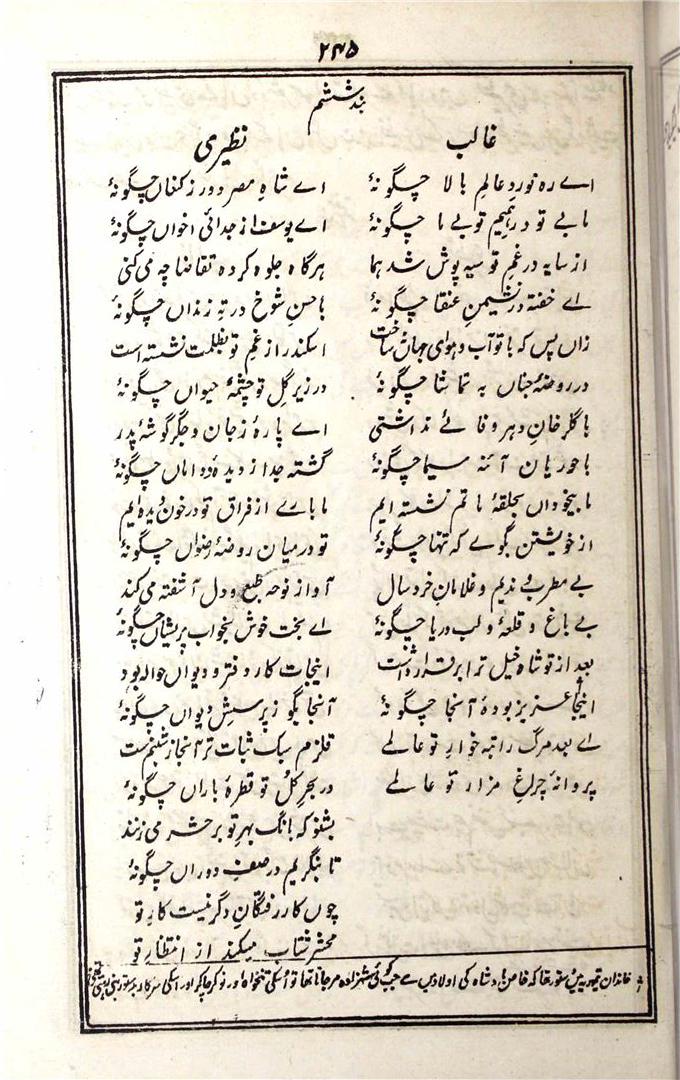 ۲۴۵
بند ششم
غالب
اے رہ نورد عالمِ بالا چگونۂ
مابے تو در ہمیم توبے ما چگونۂ
از سایہ در غمِ تو سیہ پوش شد ہما
اے خفتہ در نشیمنِ عنقا چگونۂ
زاں پس کہ با تو آب و ہوای جہاں نساخت
در روضۂ جناں بہ تماشا چگونۂ
با گلرخانِ دہر وفائے نداشتی
با حوریانِ آئنہ سیما چگونۂ
ما بیخوداں بحلقۂ ماتم نشستہ ایم
از خویشتن بگوے کہ تنہا چگونۂ
بے مطرب و ندیم و غلامانِ خرد سال
بے باغ و قلعۂ و لب دریا چگونۂ
بعد از تو شاہ خیل ترا برقرار داشت
اینجا عزیز بودۂ آنجا چگونۂ
اے بعد مرگ راتبہ خوارِ تو عالمے
پروانۂ چراغِ مزار تو عالمے
نظیری
اے شاہِ مصر دور ز کنعاں چگونۂ
اے یوسف از جدائی اخواں چگونۂ
ہر گاہ جلوہ کردہ تقاضا چہ می کنی
با حسنِ شوخ در تہِ زنداں چگونۂ
اسکندر از غمِ تو بظلمت نشستہ است
در زیر گِل تو چشمۂ حیواں چگونۂ
اے پارۂ ز جان و جگر گوشۂ پدر
گشتہ جدا ز دیدہ و داماں چگونۂ
ما بارے از فراق تو در خون دیدہ ایم
تو درمیان روضۂ رضواں چگونۂ
آواز نوحہ طبع و دل آشفتہ می کند
اے بخت خوش بخواب پریشاں چگونۂ
اینجات کار دفتر و دیواں حوالہ بود
آنجا بگو ز پرسشِ دیواں چگونۂ
قلزم سبک ثبات تر آنجا ز شبنم ست
در بحرِ کُل تو قطرۂ باراں چگونۂ
بشنو کہ بانگ بہر تو بر حشر می زنند
تا بنگریم در صفِ دوراں چگونۂ
چوں کار رفتگانِ دگر نیست کارِ تو
محشر شتاب میکند از انتظارِ تو
خاندان تیموریہ میں دستور تھا کہ خاص بادشاہ کی اولاد میں سے جب کوئی شہزادہ مر جاتا تھا تو اُسکی تنخواہ اور نوکر چاکر اور اُسکی سرکار بدستور بنی رہتی تھی